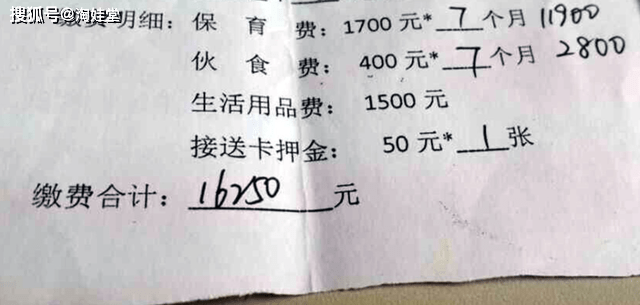 搜狐号@淘娃堂
缴费明细：保育费：1700元*7个月 11900
伙食费：400元*7个月 2800
生活用品费：1500元
接送卡押金：50元*1张
缴费合计：16250元